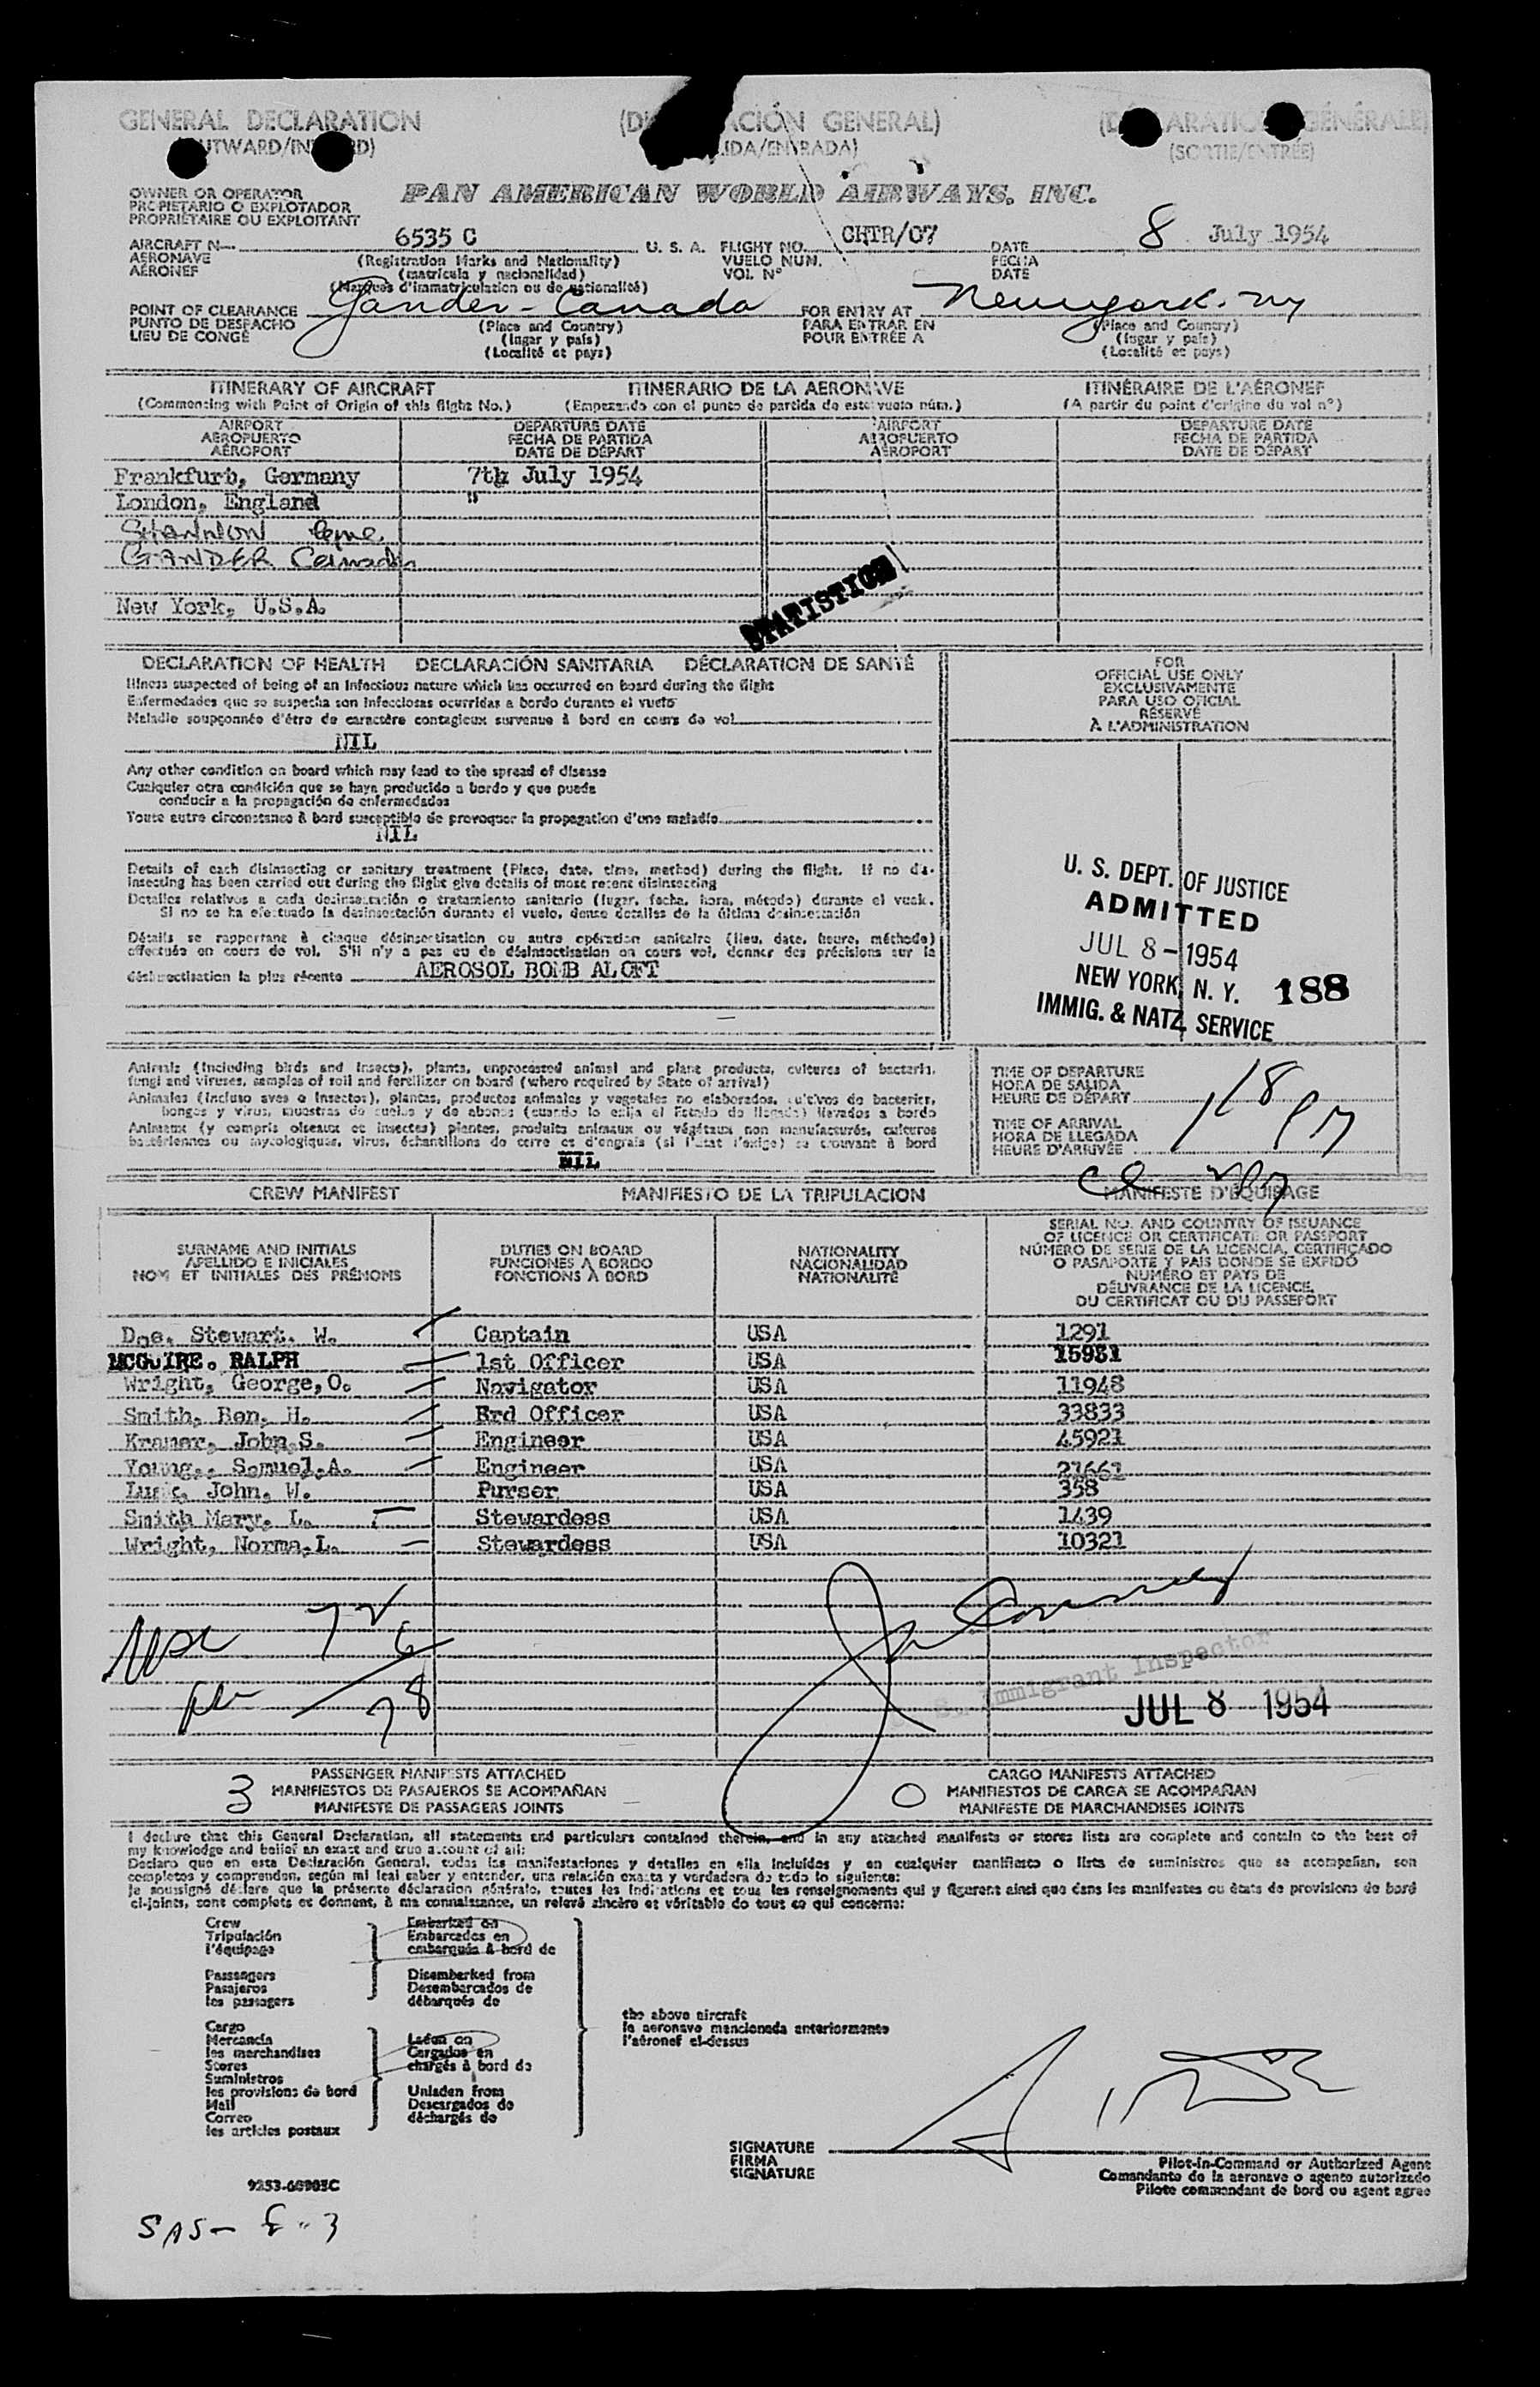 GENERAL DECLARATION
(OUTWARD/INWARD)
(DECLARACIÓN GENERAL)
(SALIDA/ENTRADA)
(DÉCLARATION GÉNÉRALE)
(SORTIE/ENTRÉE)
OWNER OR OPERATOR
PROPIETARIO O EXPLOTADOR
PROPRIÉTAIRE OU EXPLOITANT
PAN AMERICAN WORLD AIRWAYS, INC.
AIRCRAFT N 6535 C U. S. A. FLIGHT NO. CHTR/07 DATE 8 July 1954
AERONAVE (Registration Marks and Nationality) VUELO NUM. FECHA
AÉRONEF (matrícula y nacionalidad) VOL Nº DATE
(Marques d'immatriculation ou de nationalité)
POINT OF CLEARANCE Gander - Canada FOR ENTRY AT New york. ny
PUNTO DE DESPACHO (Place and Country) PARA ENTRAR EN (Place and Country)
LIEU DE CONGÉ (lugar y país) POUR ENTRÉE A (lugar y país)
(Localité et pays) (Localité et pays)
ITINERARY OF AIRCRAFT ITINERARIO DE LA AERONAVE ITINÉRAIRE DE L'AÉRONEF
(Commencing with Point of Origin of this flight No.) (Empezando con el punto de partida de este vuelo núm.) (A partir du point d'origine du vol nº)
AIRPORT DEPARTURE DATE AIRPORT DEPARTURE DATE
AEROPUERTO FECHA DE PARTIDA AEROPUERTO FECHA DE PARTIDA
AÉROPORT DATE DE DÉPART AÉROPORT DATE DE DÉPART
Frankfurt, Germany 7th July 1954
London, England "
SHANNON
GANDER Canada
New York, U.S.A.
DECLARATION OF HEALTH DECLARACIÓN SANITARIA DÉCLARATION DE SANTÉ
Illness suspected of being of an infectious nature which has occurred on board during the flight
Enfermedades que se sospecha son infecciosas ocurridas a bordo durante el vuelo
Maladie soupçonnée d'être de caractère contagieux survenue à bord en cours de vol
NIL
Any other condition on board which may lead to the spread of disease
Cualquier otra condición que se haya producido a bordo y que pueda
conducir a la propagación de enfermedades
Toute autre circonstance à bord susceptible de provoquer la propagation d'une maladie
NIL
Details of each disinsecting or sanitary treatment (Place, date, time, method) during the flight. If no dis-
insecting has been carried out during the flight give details of most recent disinsecting
Detalles relativos a cada desinsectación o tratamiento sanitario (lugar, fecha, hora, método) durante el vuelo.
Si no se ha efectuado la desinsectación durante el vuelo, dense detalles de la última desinsectación
Détails se rapportant à chaque désinsectisation ou autre opération sanitaire (lieu, date, heure, méthode)
effectués en cours de vol. S'il n'y a pas eu de désinsectisation en cours vol, donner des précisions sur la
désinsectisation la plus récente AEROSOL BOMB ALOFT
FOR
OFFICIAL USE ONLY
EXCLUSIVAMENTE
PARA USO OFICIAL
RÉSERVÉ
À L'ADMINISTRATION
U. S. DEPT. OF JUSTICE
ADMITTED
JUL 8 - 1954
NEW YORK, N. Y. 188
IMMIG. & NATZ. SERVICE
Animals (including birds and insects), plants, unprocessed animal and plant products, cultures of bacteria,
fungi and viruses, samples of soil and fertilizer on board (where required by State of arrival)
Animales (incluso aves o insectos), plantas, productos animales y vegetales no elaborados, cultivos de bacterias,
hongos y virus, muestras de suelos y de abonos (cuando lo exija el Estado de llegada) llevados a bordo
Animaux (y compris oiseaux et insectes) plantes, produits animaux ou végétaux non manufacturés, cultures
bactériennes ou mycologiques, virus, échantillons de terre et d'engrais (si l'état l'exige) se trouvant à bord
NIL
TIME OF DEPARTURE
HORA DE SALIDA
HEURE DE DÉPART
TIME OF ARRIVAL
HORA DE LLEGADA
HEURE D'ARRIVÉE
118 PM
CREW MANIFEST MANIFIESTO DE LA TRIPULACION MANIFESTE D'ÉQUIPAGE
SURNAME AND INITIALS
APELLIDO E INICIALES
NOM ET INITIALES DES PRÉNOMS
DUTIES ON BOARD
FUNCIONES A BORDO
FONCTIONS À BORD
NATIONALITY
NACIONALIDAD
NATIONALITÉ
SERIAL NO. AND COUNTRY OF ISSUANCE
OF LICENCE OR CERTIFICATE OR PASSPORT
NÚMERO DE SERIE DE LA LICENCIA, CERTIFICADO
O PASAPORTE Y PAIS DONDE SE EXPIDÓ
NUMÉRO ET PAYS DE
DÉLIVRANCE DE LA LICENCE,
DU CERTIFICAT OU DU PASSEPORT
Doe, Stewart. W. Captain USA 1291
MCGUIRE. RALPH 1st Officer USA 15981
Wright, George,O. Navigator USA 11948
Smith, Ben, H. Erd Officer USA 33833
Kramer, John,S. Engineer USA 45921
Young,. Samuel,A. Engineer USA 21661
John, W. Purser USA 358
Smith Mary, L. Stewardess USA 1439
Wright, Norma,L. Stewardess USA 10321
72
6
78
Immigrant Inspector
JUL 8 1954
3 PASSENGER MANIFESTS ATTACHED
MANIFIESTOS DE PASAJEROS SE ACOMPAÑAN
MANIFESTE DE PASSAGERS JOINTS
0 CARGO MANIFESTS ATTACHED
MANIFIESTOS DE CARGA SE ACOMPAÑAN
MANIFESTE DE MARCHANDISES JOINTS
I declare that this General Declaration, all statements and particulars contained therein, and in any attached manifests or stores lists are complete and contain to the best of
my knowledge and belief an exact and true account of all:
Declaro que en esta Declaración General, todas las manifestaciones y detalles en ella incluidos y en cualquier manifiesto o lista de suministros que se acompañan, son
completos y comprenden, según mi leal saber y entender, una relación exacta y verdadera de todo lo siguiente:
Je soussigné déclare que la présente déclaration générale, toutes les indications et tous les renseignements qui y figurent ainsi que dans les manifestes ou états de provisions de bord
ci-joints, sont complets et donnent, à ma connaissance, un relevé sincère et véritable do tout ce qui concerne:
Crew
Tripulación
l'équipage
Passengers
Pasajeros
les passagers
Embarked on
Embarcados en
embarqués à bord de
Disembarked from
Desembarcados de
débarqués de
Cargo
Mercancía
les marchandises
Stores
Suministros
les provisions de bord
Mail
Correo
les articles postaux
Laden on
Cargados en
chargés à bord de
Unladen from
Descargados de
déchargés de
the above aircraft
la aeronave mencionada anteriormente
l'aéronef ci-dessus
SIGNATURE
FIRMA
SIGNATURE
Pilot-in-Command or Authorized Agent
Comandante de la aeronave o agente autorizado
Pilote commandant de bord ou agent agree